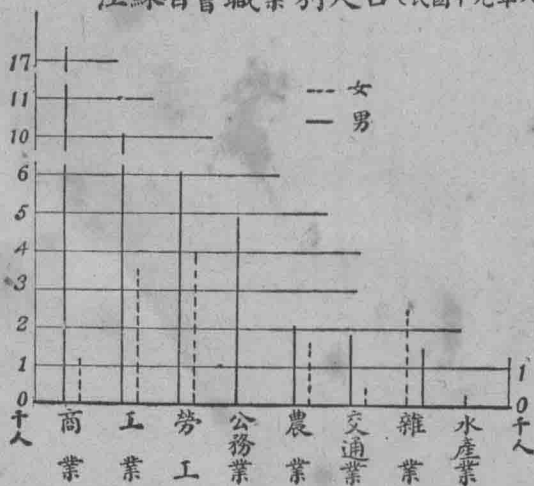 江蘇省會職業別人口（民國十九年
17
11
10
6
5
4
3
2
1
0
千人
女
男
1
0
千人
商業
工業
勞工
公務業
農業
交通業
雜業
水產業